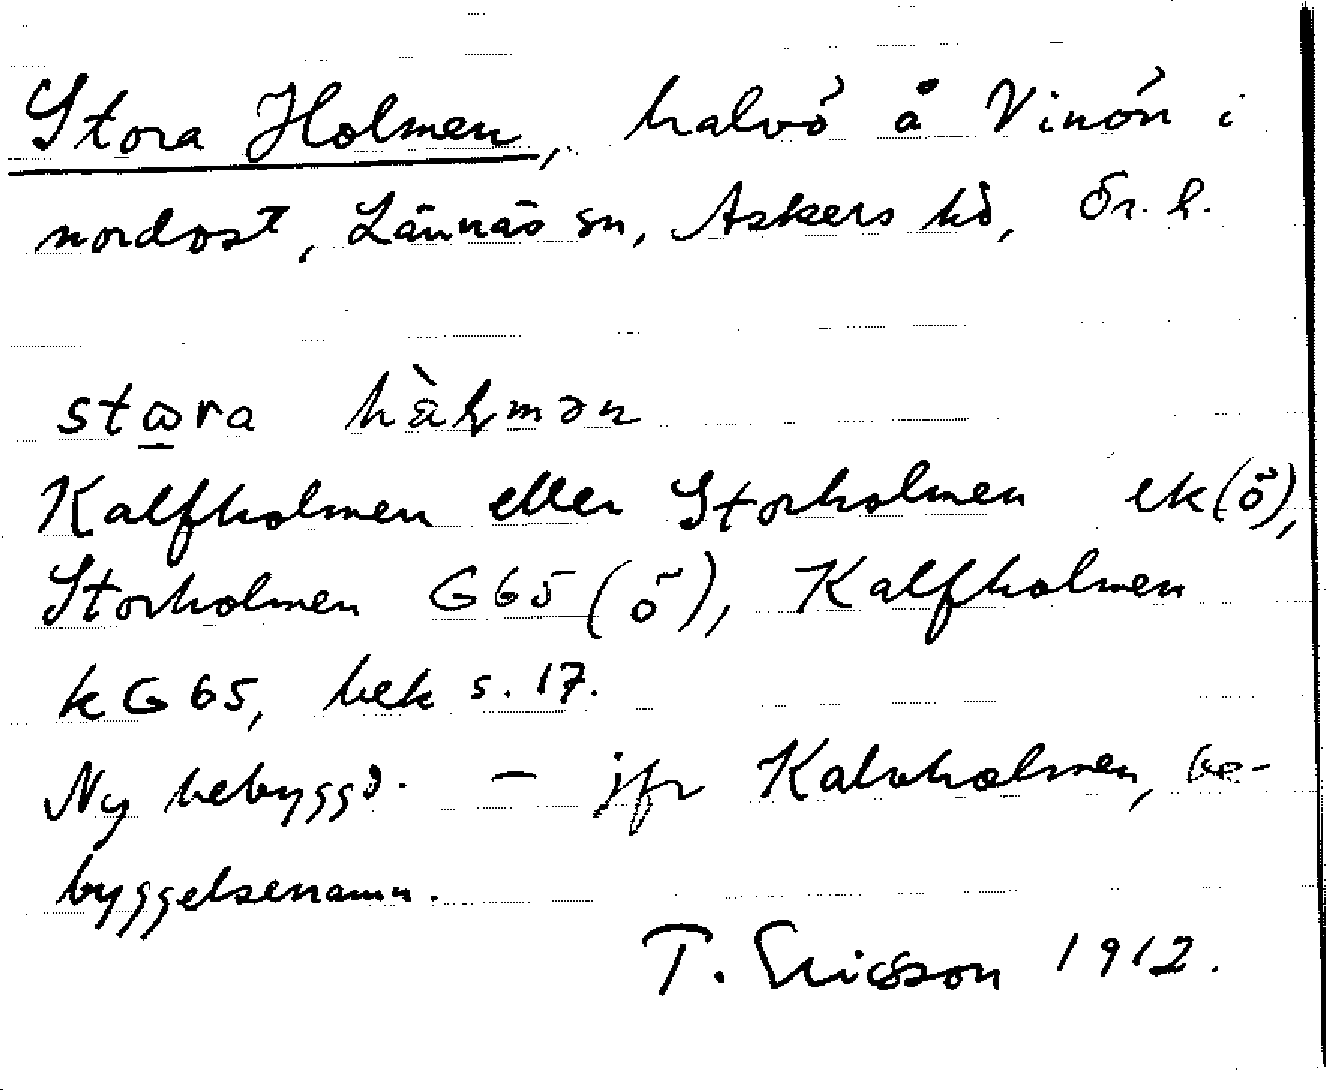 Stora Holmen, halvö å Vinön i
nordost, Lännäs sn, Askers hd, Ör. l.
stѡra hàḷmən
Kalfholmen eller Storholmen ek(ö),
Storholmen G65 (ö), Kalfholmen
kG65, bek s. 17.
Ny bebyggd. – jfr Kalvholmen, be-
byggelsenamn.
T. Ericsson 1912.